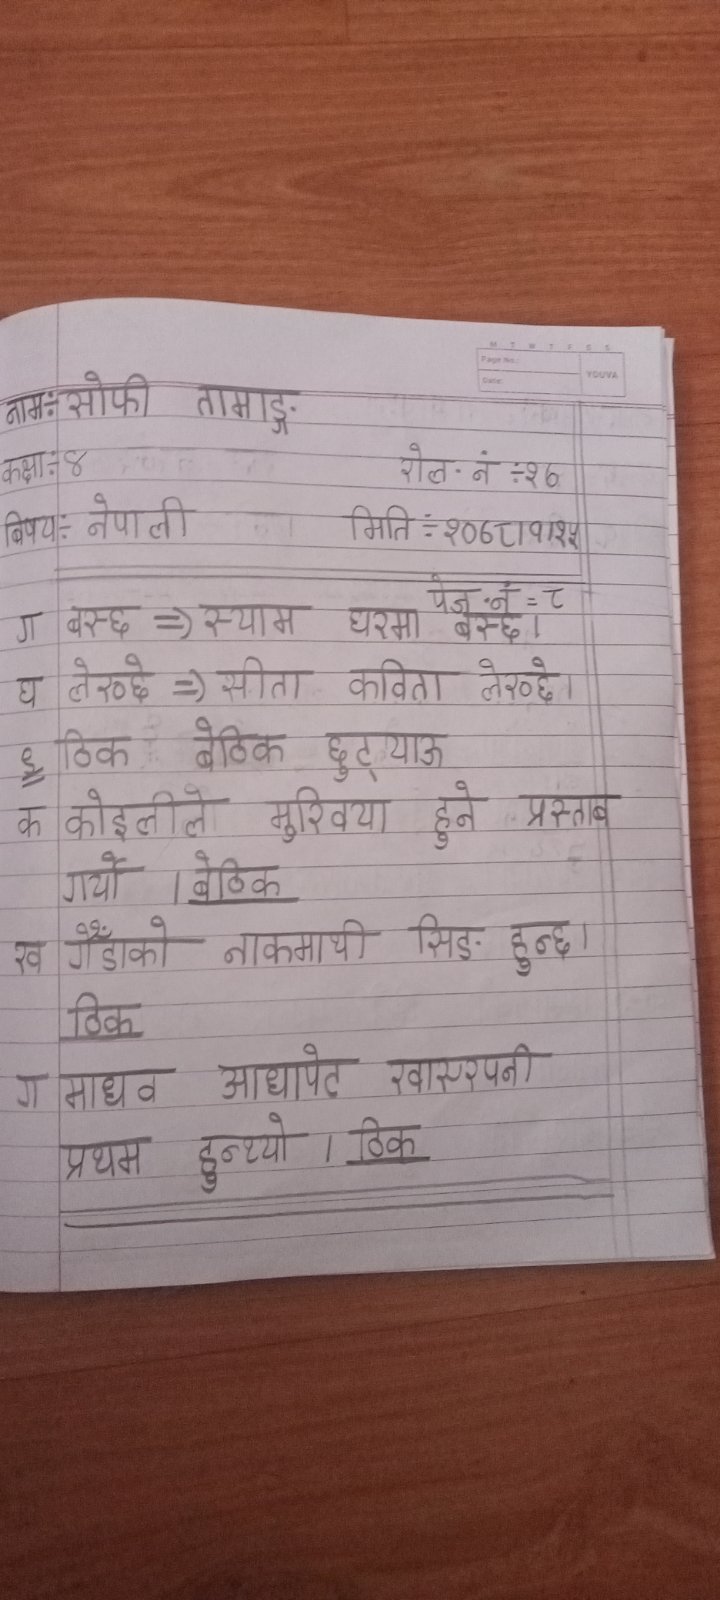 M T W T F S S
Page No.:
Date:
YOUVA
नामः सोफी तामाङ्ग
कक्षाः ४
रोल. नं ÷२६
बिषयः नेपाली
मिति ÷२०७८।१।२५
पेज.नं = ८
ग बस्छ => स्याम घरमा बस्छ।
घ लेख्छे => सीता कविता लेख्छे।
ठिक बेठिक छुट्याऊ
क कोइलीले मुखिया हुने प्रस्ताब
गर्यो । बेठिक
ख गैँडाको नाकमाथी सिङ हुन्छ।
ठिक
ग माधव आधापेट खाएरपनी
प्रथम हुन्थ्यो । ठिक